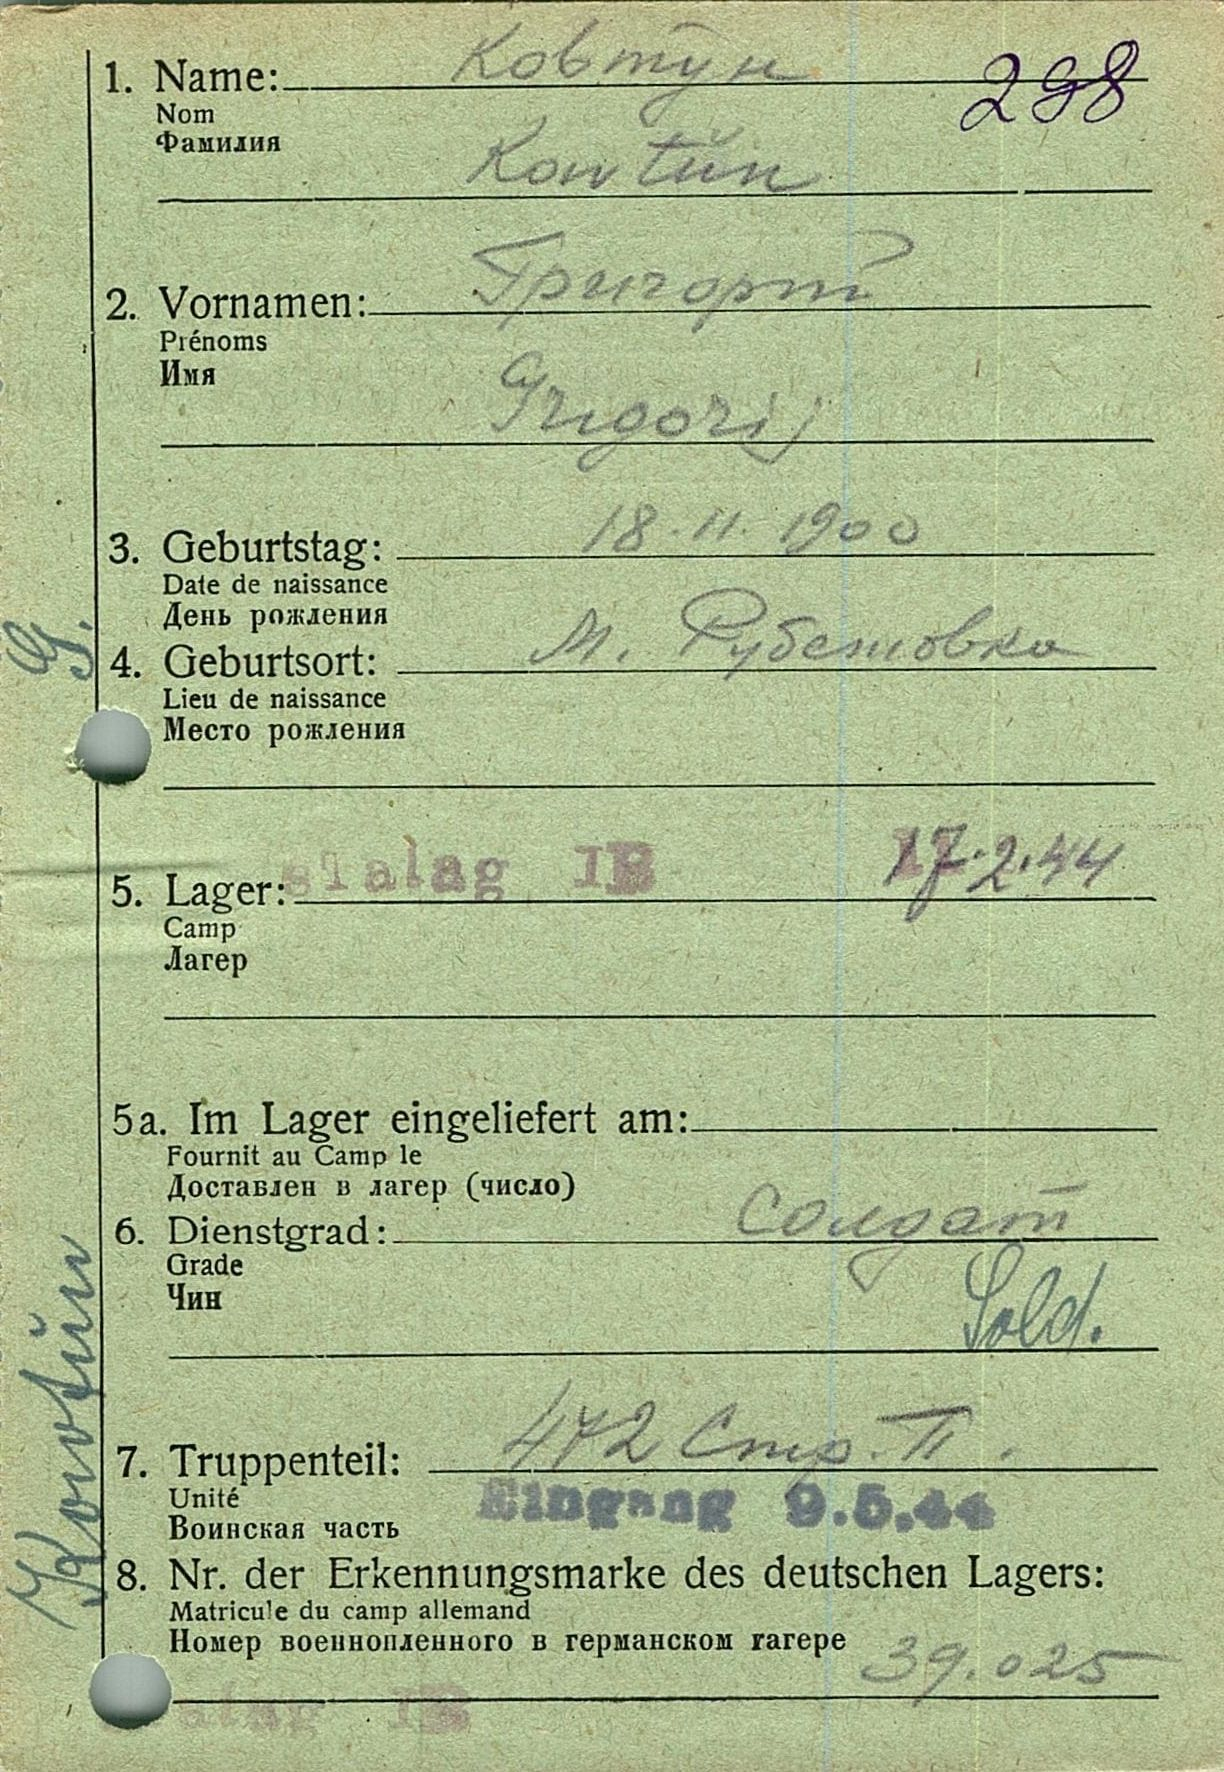 Ковтун
1. Name:
298
Nom
Фамилия
Kowtŭn
Григорий
2. Vornamen:
Prénoms
Имя
Grigorij
18.11.1900
3. Geburtstag:
Date de naissance
День рождения
G.
М.
4. Geburtsort:
Lieu de naissance
Место рождения
Stalag IB
17.2.44
5. Lager:
Camp
Лагер
5a. Im Lager eingeliefert am:
Fournit au Camp le
Доставлен в лагер (число)
солдат
6. Dienstgrad:
Grade
Чин
Sold.
472 Стр. П.
7. Truppenteil:
Unité
Eingang 9.5.44
Воинская часть
8. Nr. der Erkennungsmarke des deutschen Lagers:
Matricule du camp allemand
Номер военнопленного в германском гагере
39.025
alag IB
Kowtŭn